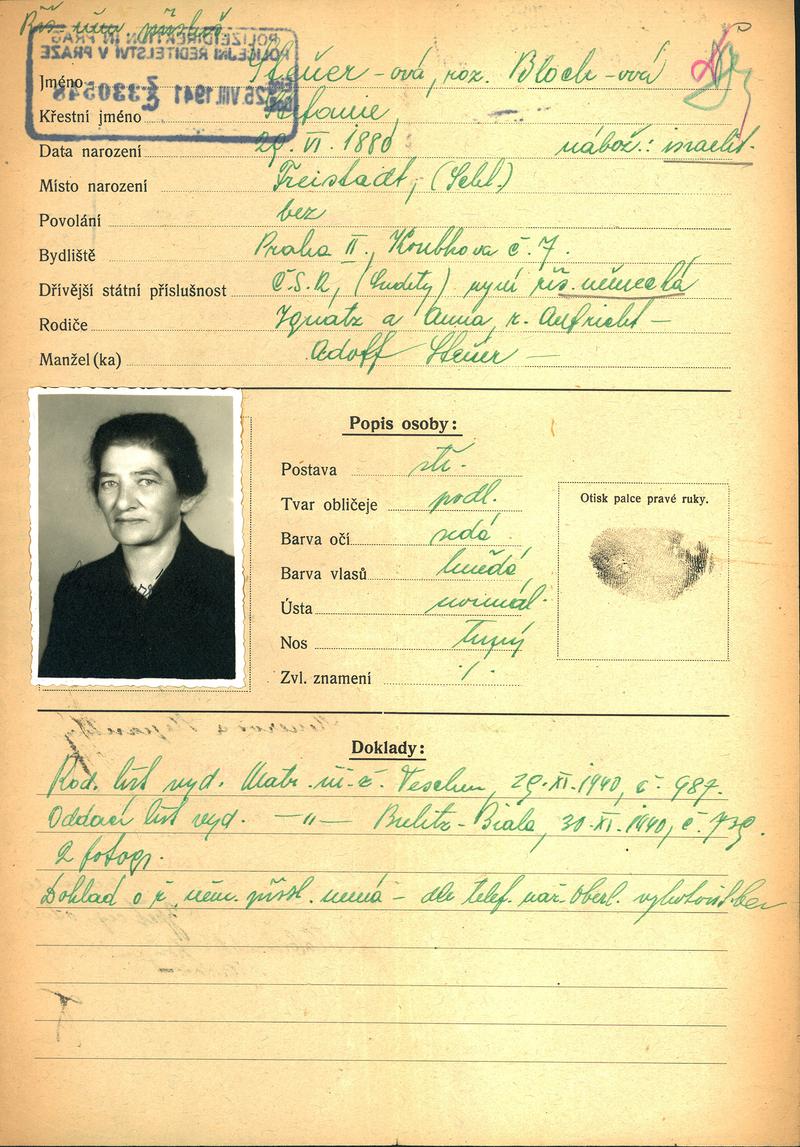 Říš. něm. přísluš
POLIZEIDIREKTION IN PRAG
POLICEJNÍ ŘEDITELSTVÍ V PRAZE
25. VIII. 1941 330548
Jméno Steuer-ová, roz. Bloch-ová
Křestní jméno Stefanie
Data narození 29. VI. 1880 nábož.: israelit.
Místo narození Freistadt, (Schl.)
Povolání bez
Bydliště Praha II., Koubkova č. 7.
Dřívější státní příslušnost Č.S.R., (Sudety) nyní říš. německá
Rodiče Ignatz a Anna, r. Aufricht —
Manžel (ka) Adolf Steuer —
Popis osoby:
Postava stř.
Tvar obličeje podl.
Barva očí šedá
Barva vlasů hnědá
Ústa normál.
Nos tupý
Zvl. znamení ·/·
Otisk palce pravé ruky.
Doklady:
Rod. list vyd. Matr. Teschen, 29. XI. 1940, č. 987.
Oddací list vyd. —„— Bielitz-Biala, 30. XI. 1940, č. 739.
2 fotogr.
Doklad o ř. něm. přísl. nemá - dle telef. nař. Oberl. vyhotovit